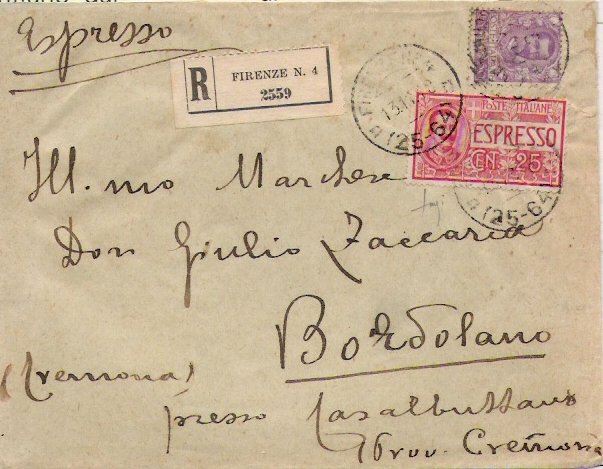 Espresso
R
FIRENZE N. 4
2559
POSTE ITALIANE
ESPRESSO
CEN. 25
(25-64)
(25-64)
Ill. mo Marchese
Don Giulio Zaccaria
Bordolano
(Cremona)
presso Casalbuttano
Prov. Cremona